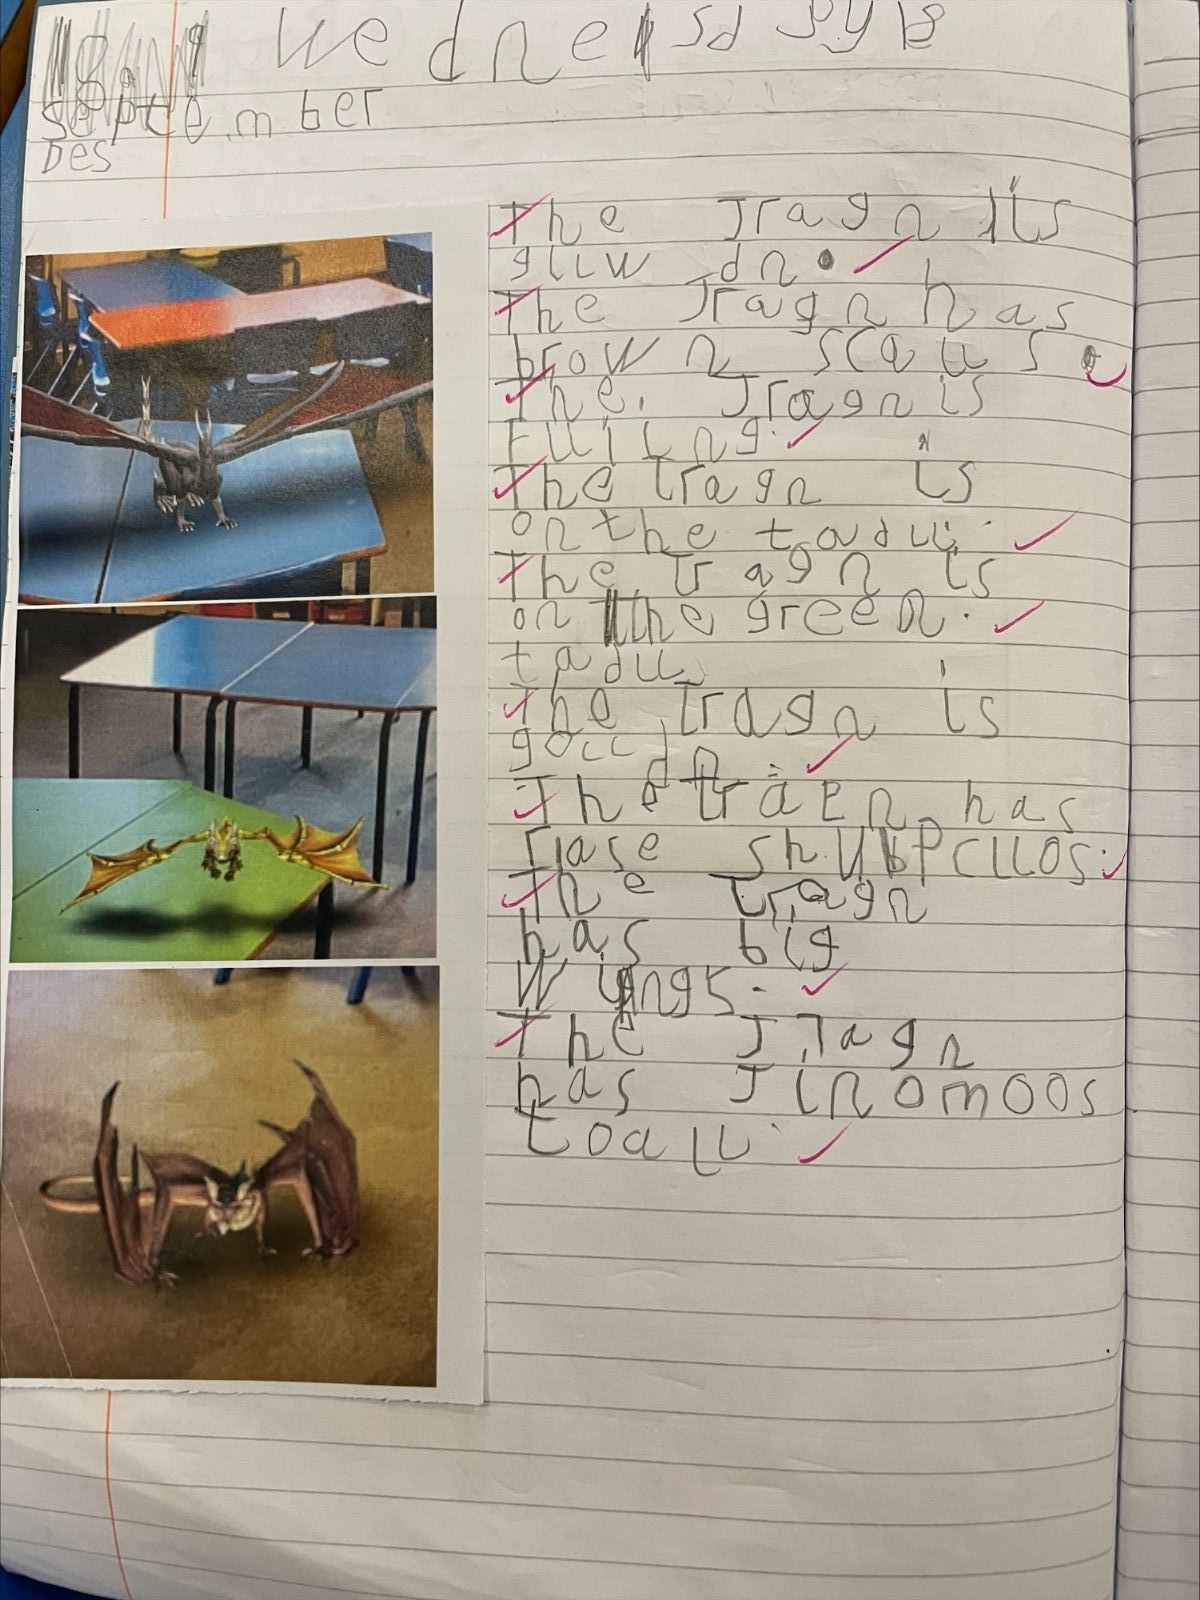 Wednesday 18
September
Des
The Jragn is
gliw dn.
The Jragn has
brown scalls.
The Jragn is
flliing.
The tragn is
on the tadll.
The tragn is
on the green.
tadll
The tragn is
goccdn
The traen has
has
The tragn
has big
wings.
The Jragn
has Jinomoos
toall.